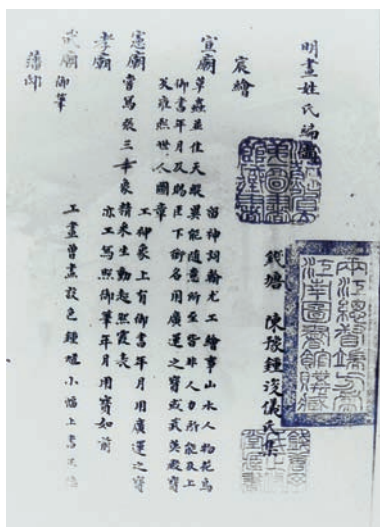 明畫姓氏編韻
錢塘 陳豫鍾浚儀氏集
宸繪
宣廟 留神詞翰尤工繪事山水人物花鳥
草蟲並佳天縱異能隨意所至皆非人力所能及上
御書年月及賜臣下 名用廣運之寶或武英殿寶
及雍熙世人圖章
憲廟 工神象上有御書年月用廣運之寶
嘗寫張三丰象精采生動超然霞表
孝廟 亦工寫照御筆年月用寶如前
武廟御筆
藩邸
工畫曾畫設色鍾馗小幅上書
兩江總督端方為
江南圖書館購藏